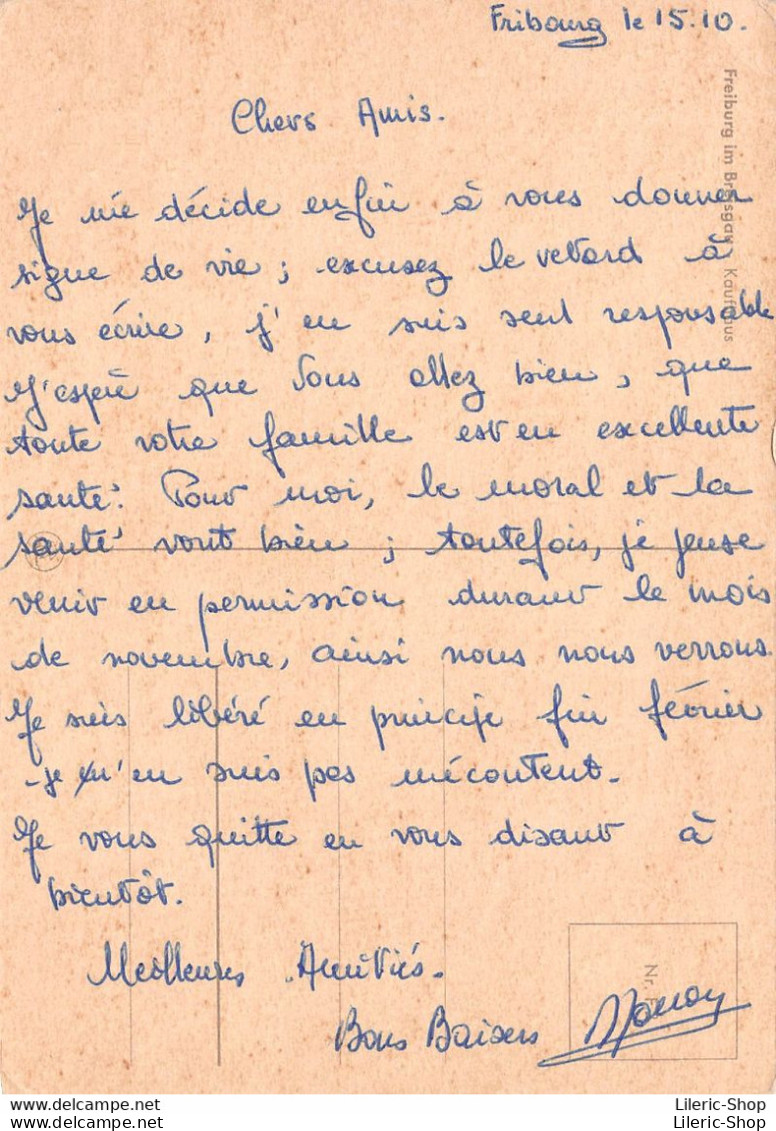 Fribourg le 15.10.
Freiburg im Breisgau Kaufhaus
Chers Amis.
Je me décide enfin à vous donner
signe de vie ; excusez le retard à
vous écrire, j'en suis seul responsable
J'espère que vous allez bien, que
toute votre famille est en excellente
santé. Pour moi, le moral et la
santé vont bien ; toutefois, je pense
venir en permission durant le mois
de novembre, ainsi nous nous verrons.
Je suis libéré en principe fin février
- je n'en suis pas mécontent.
Je vous quitte en vous disant à
bientôt.
Meilleures Amitiés.
Bons Baisers
Nr. F
Lileric-Shop Lileric-Shop
Lileric-Shop Lileric-Shop